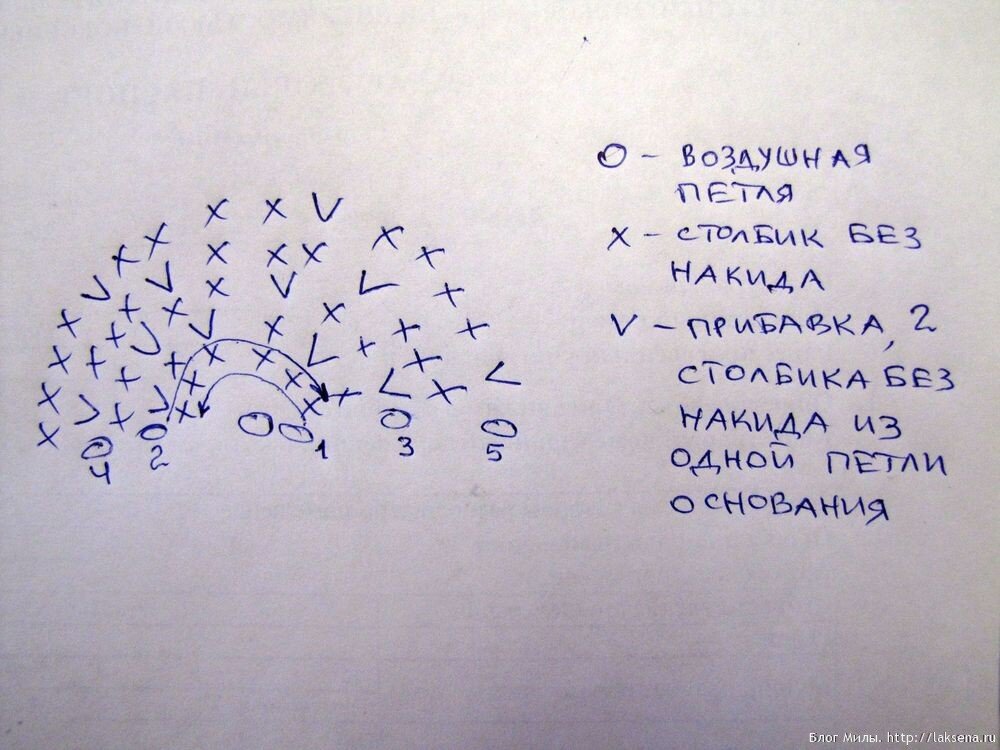 О – ВОЗДУШНАЯ
ПЕТЛЯ
Х – СТОЛБИК БЕЗ
НАКИДА
V – ПРИБАВКА, 2
СТОЛБИКА БЕЗ
НАКИДА ИЗ
ОДНОЙ ПЕТЛИ
ОСНОВАНИЯ
4 2 1 3 5
Блог Милы. http://laksena.ru